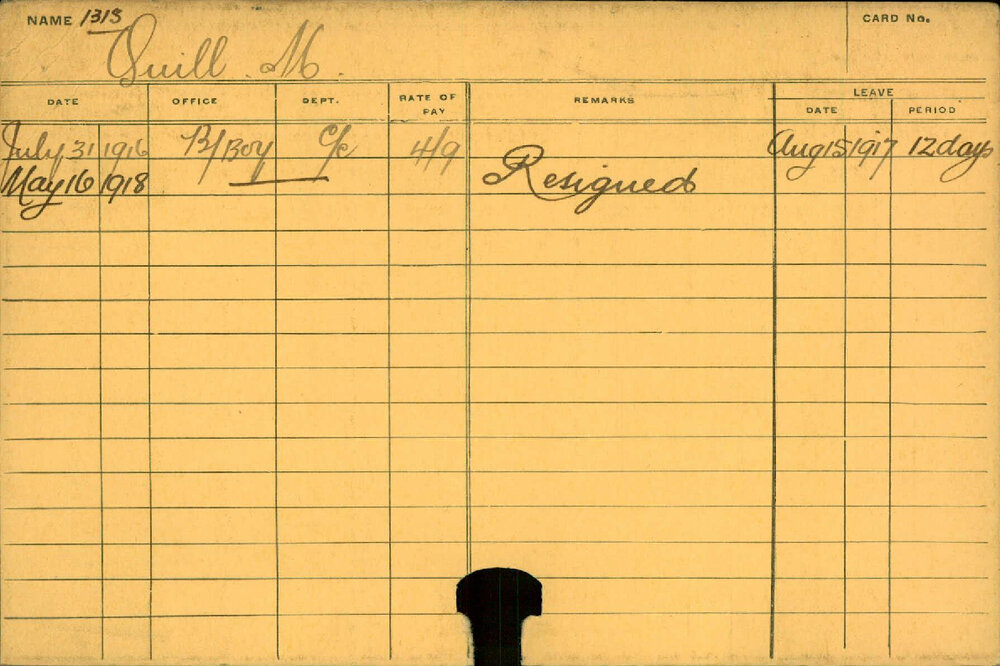 NAME 1313 CARD No.
Quill M.
DATE OFFICE DEPT. RATE OF PAY REMARKS LEAVE
DATE PERIOD
July 31 1916 B/Boy C/c 4/9 Aug 15 1917 12 days
May 16 1918 Resigned